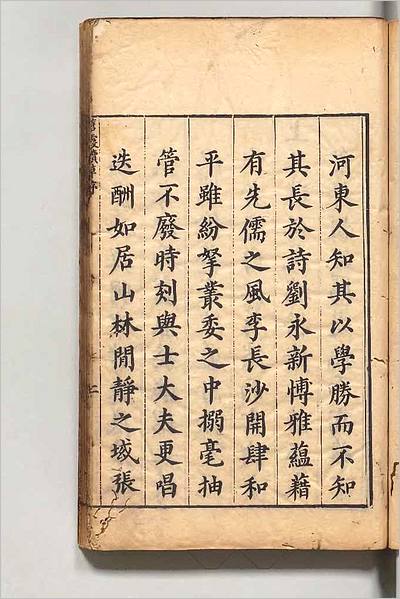 河東人知其以學勝而不知
其長於詩劉永新愽雅蘊藉
有先儒之風李長沙開肆和
平雖紛拏叢委之中搦毫抽
管不廢時刻與士大夫更唱
迭酬如居山林閒静之域張